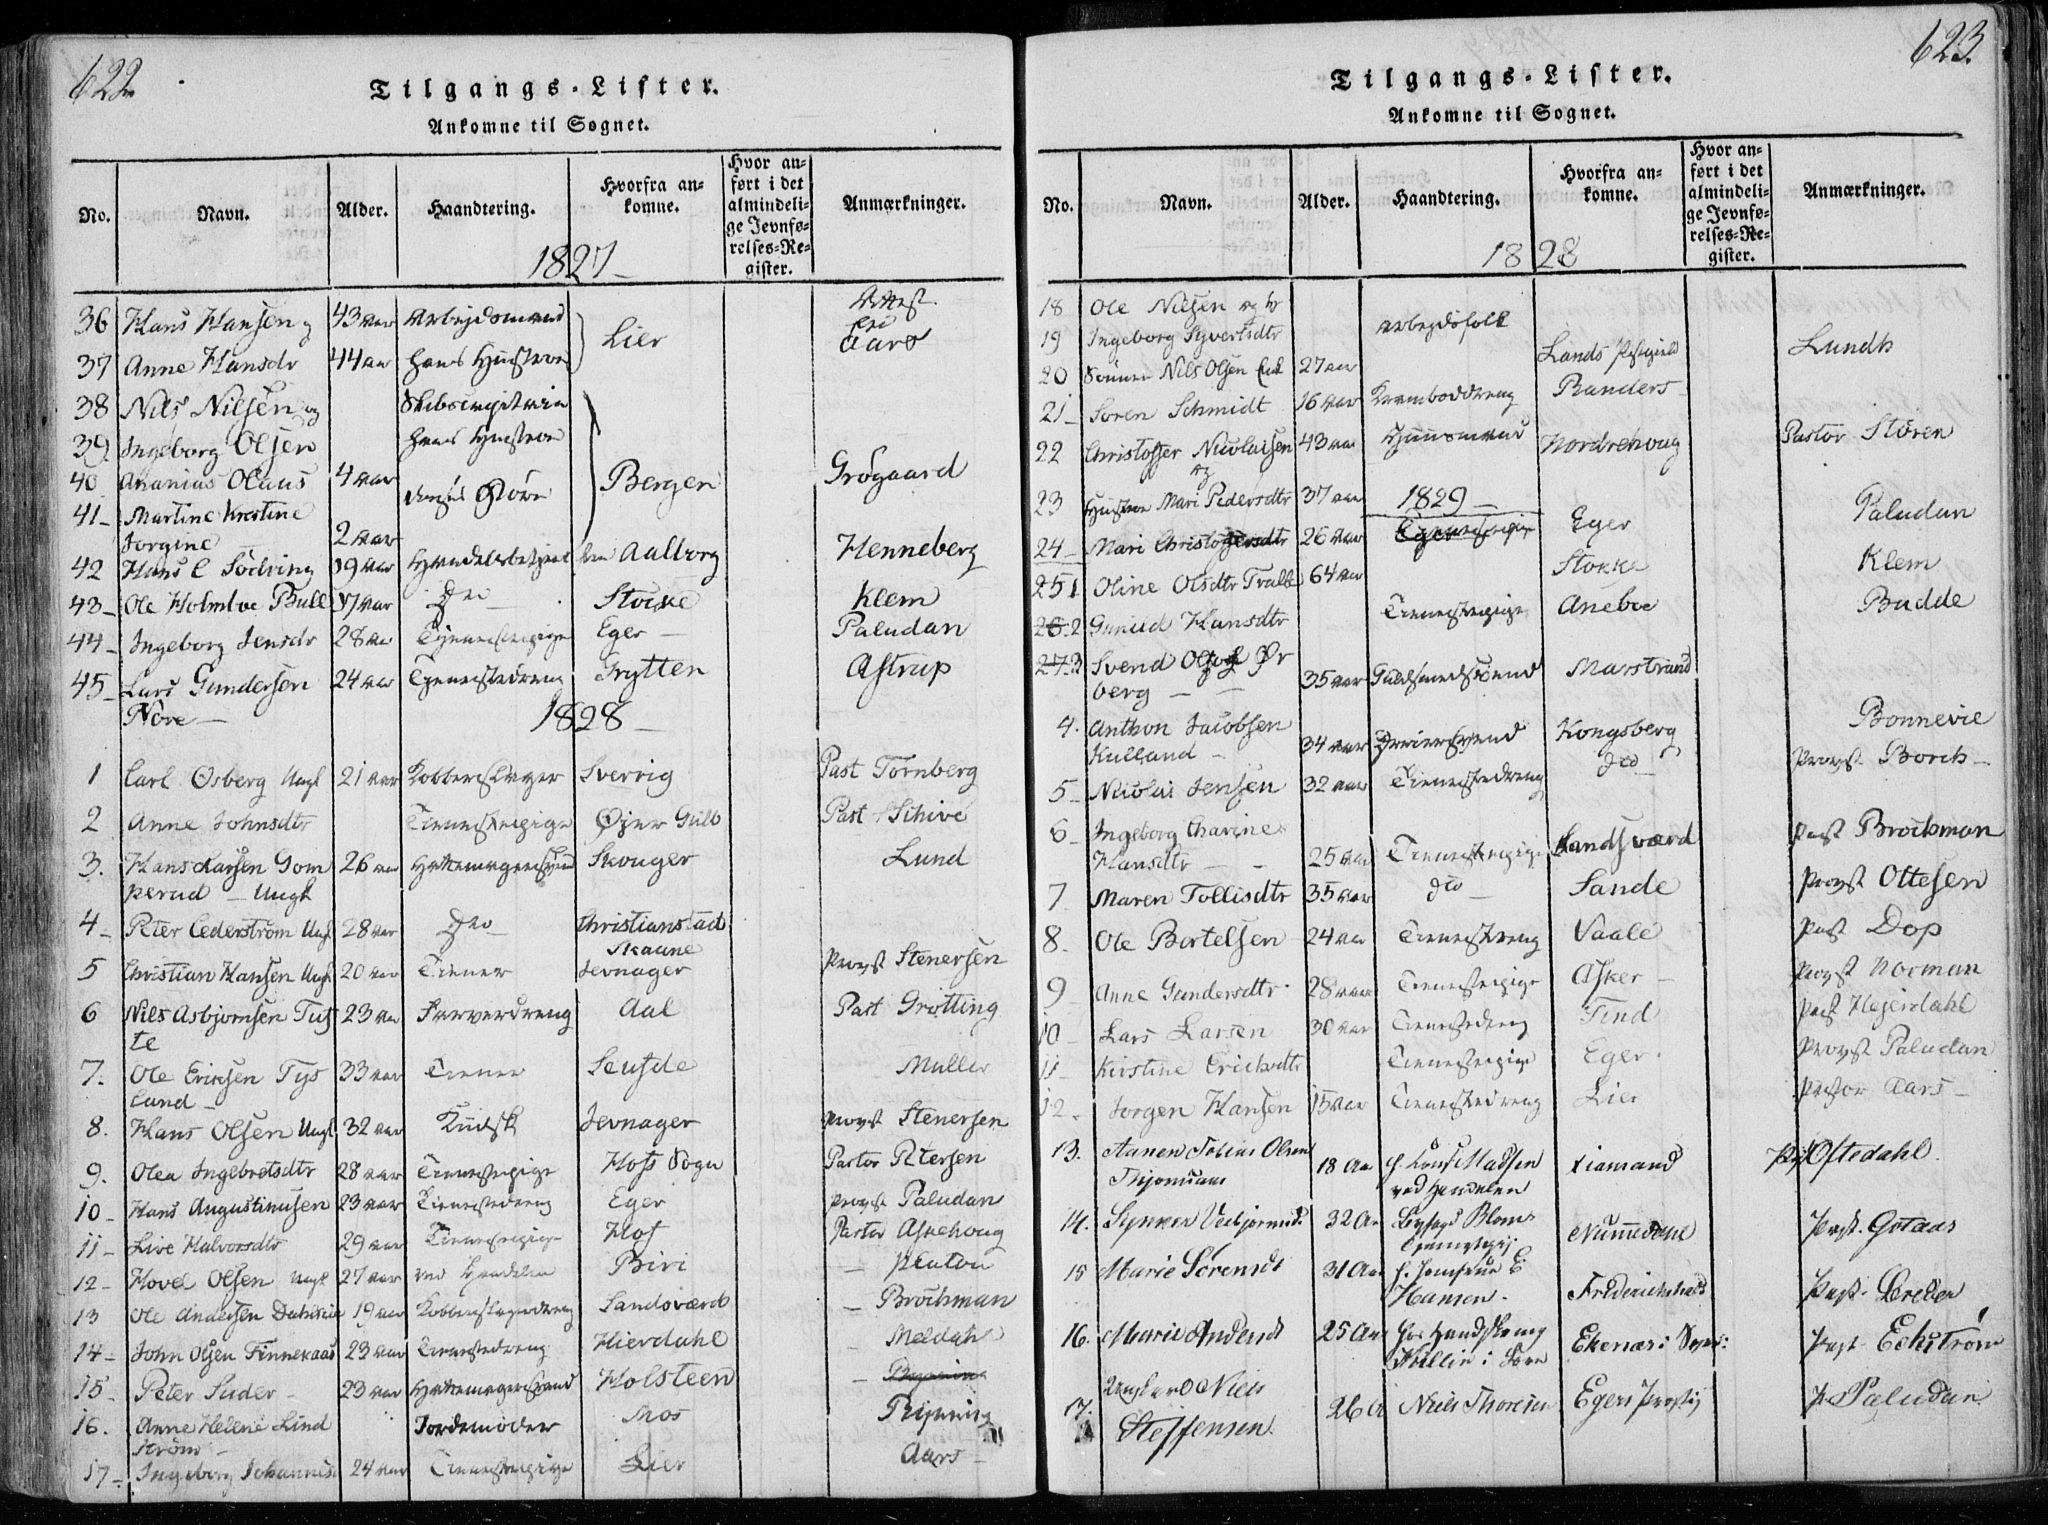 622.
Tilgangs-Lister.
Ankomne til Sognet.
No. Navn. Alder. Haandtering. Hvorfra ankomne. Hvor anført i det almindelige Jevnførelses-Register. Anmærkninger.
1827
Attest fra
36 Hans Hansen og 43 aar Arbejdsmand Lier Aars
37 Anne Hansdr 44 aar hans Hustroe
38 Nils Nilsen og
39 Ingeborg Olsen hans Hustroe
40 Ananias Olaus 4 aar Bergen Grøgaard
41 Martine Kristine
Jorgine 2 aar
42 Hans C Södring 19 aar Aalborg Henneberg
43 Ole Holmboe Bull 17 aar Do Stocke Klem
44 Ingeborg Jensdr 28 aar Tjenestepige Eger Paludan
45 Lars Gundersen 24 aar Tjenestedreng Grytten Astrup
Nore
1828
1 Carl Osberg Ungk 21 aar Kobberslager Sverrig Past Tornberg
2 Anne Johnsdtr Tienestepige Øjer Guld Past Schive
3. Hans Larsen Gom 26 aar Hattemagersvend Skouger Lund
perud Ungk
4 Peter Cederstrøm Ungk 28 aar Do Christianstad
Skaane
5 Christian Hansen Ungk 20 aar Tiener Jevnager Provst Stenersen
6 Nils Asbjørnsen Tuf 23 aar Farverdreng Aal Past Grøtting
te
7. Ole Eriksen Tys 33 aar Tiener Muller
land
8. Hans Olsen Ungk 32 aar Kudsk Jevnager Provst Stenersen
9. Olea Ingebretsdtr 28 aar Tienestepige Hofs Sogn Pastor Petersen
10 Hans Augustinusen 23 aar Tienestedreng Eger Provst Paludan
11 Live Halvorsdtr 29 aar Tienestepige Hof Pastor Askehoug
12 Hovel Olsen Ungk 27 aar ved Handelen Biri
13 Ole Andersen 19 aar Kobberslagerdreng Sandsværd Brochman
14 John Olsen Finnekaas 23 aar Tienestedreng Hierdahl Meldahl
15 Peter Suder 23 aar Hattemagersvend Holsteen
16. Anne Helene Lind Jordemoder Mos
strøm
17 Ingeborg Johannesd 24 aar Tienestepige Lier Aars
623.
Tilgangs-Lister.
Ankomne til Sognet.
No. Navn. Alder. Haandtering. Hvorfra ankomne. Hvor anført i det almindelige Jevnførelses-Register. Anmærkninger.
1828
18 Ole Nilsen og h
19 Ingeborg Syvertsdtr Arbejdsfolk
20 Sønnen Nils Olsen 27 aar Lands Præstgield Lundh
21 Soren Schmidt 16 aar Kramboddreng Randers
22 Christoffer Nicolaisen 43 aar Huusmand Nordrehoug Pastor Støren
og
23 Hustroe Mari Pedersdtr 37 aar
1829
24 Mari Christoffersdtr 26 aar Eger Paludan
25 1 Oline Olsdtr 64 aar Stokke Klem
26 2 Gunild Hansdtr Tienestepige Aneboe Budde
27 3 Svend Ør
berg 35 aar Guldsmedsvend Marstrand
4. Anthon Jacobsen
Kulland 34 aar Kongsberg Bonnevie
5 Nicolai Jensen 32 aar Tienestedreng do Provst Borch
6 Ingeborg Charine
Hansdtr 25 aar Tienestepige Sandsværd Past Brochman
7 Maren Tollisdtr 35 aar do Sande Provst Ottesen
8. Ole Bertelsen 24 aar Tienestdreng Vaale Past Dop
9 Anne Gundersdtr 28 aar Tienestepige Asker Provst Norman
10 Lars Larsen 30 aar Tienestedreng Tind Past Hejerdahl
11 Kirstine Erichsdtr Tienestepige Eger Provst Paludan
12 Jorgen Hansen 15 aar Tienestedreng Lier Pastor Aars
13. Aanen Tobias Olsen
18 Aar Madsen Oftedahl.
ved Handelen
14. 32 Aar Blom Nummedal Past. Gotaas
15 Marie Sørensdt 31 Aar
Hansen. Friderichshald
16. Marie Andersd 25 Aar Ekenæs i Past Eckstrøm
17. Ungkarl Niels
Steffensen. 26 A Niels Thoresen Egers P Paludan.